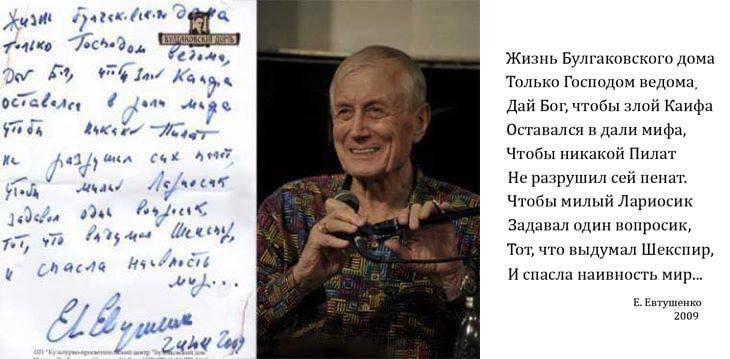 Жизнь Булгаковского дома
БУЛГАКОВСКИЙ ДОМЪ
только Господом ведома,
Дай Бог, чтоб злой Каифа
оставался в дали мифа
чтобы никакой Пилат
не разрушил сих пенат,
чтобы милый Лариосик
задавал один вопросик,
тот, что выдумал Шекспир,
и спасла наивность
мир...
Е. Евтушенко
2009
НП "Культурно-просветительский центр "Булгаковский дом"
Жизнь Булгаковского дома
Только Господом ведома,
Дай Бог, чтобы злой Каифа
Оставался в дали мифа,
Чтобы никакой Пилат
Не разрушил сей пенат.
Чтобы милый Лариосик
Задавал один вопросик,
Тот, что выдумал Шекспир,
И спасла наивность мир...
Е. Евтушенко
2009